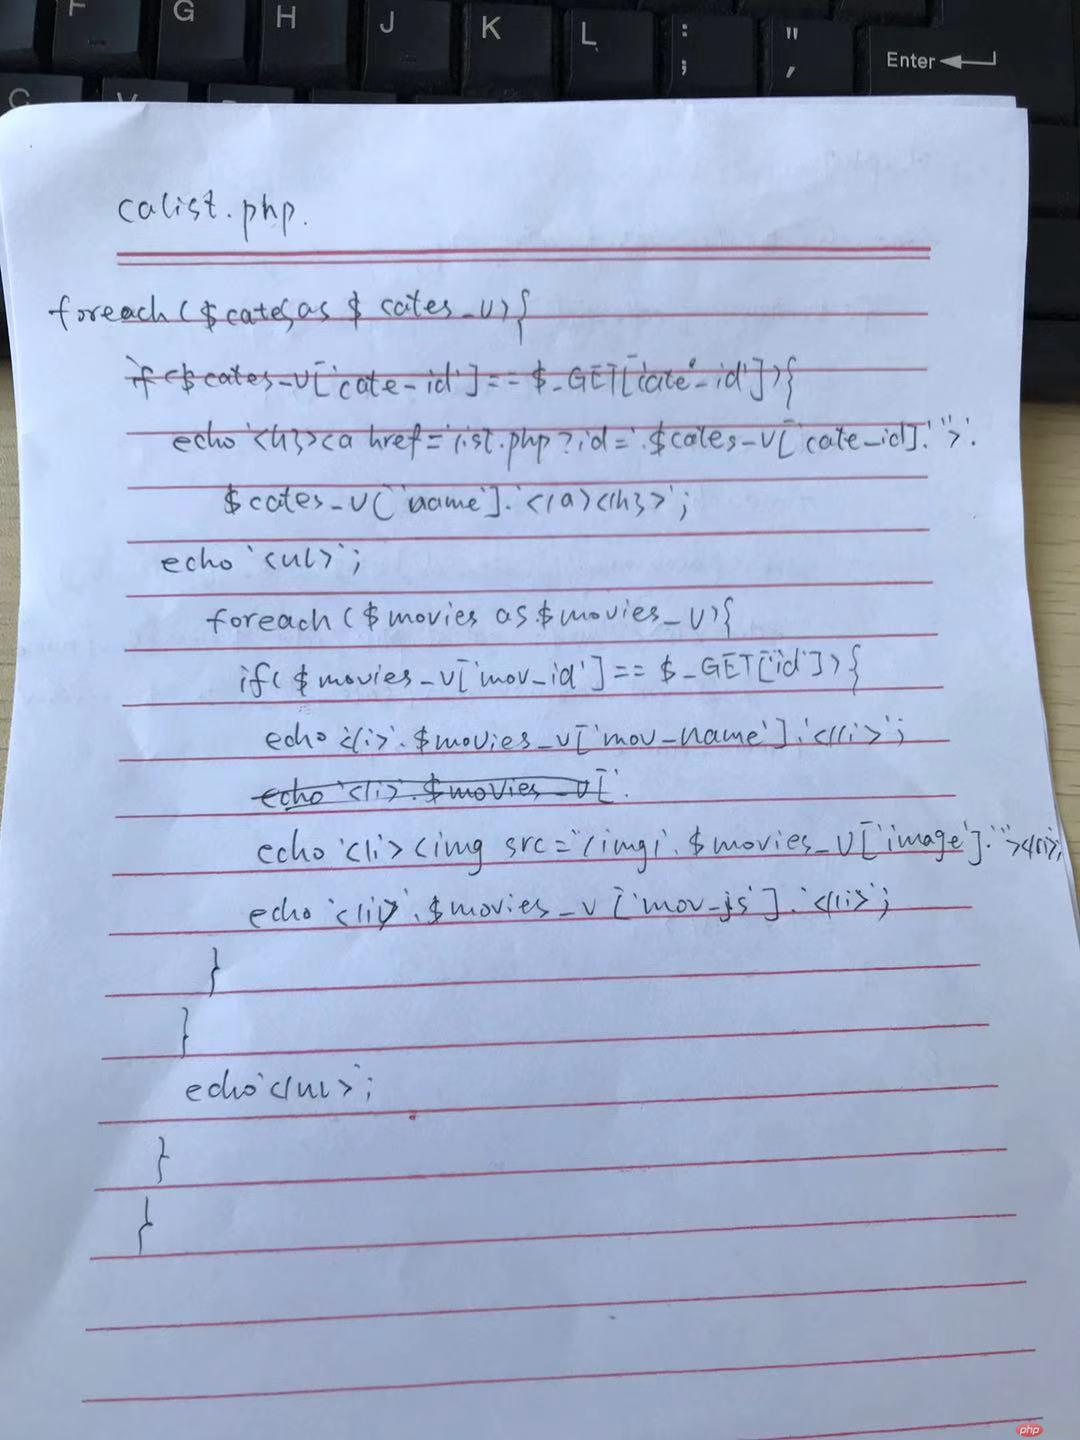 F G H J K L : ; " , Enter
C V
calist.php.
foreach($cates as $cates_v){
if($cates_v['cate_id']==$_GET['cate_id']){
echo'<h3><a href='list.php?id='.$cates_v['cate_id'].'">'.
$cates_v['name'].'</a></h3>';
echo'<ul>';
foreach($movies as $movies_v){
if($movies_v['mov_id']==$_GET['id']){
echo'<li>'.$movies_v['mov_name'].'</li>';
echo'<li>'.$movies_v['
echo'<li><img src="/img/'.$movies_v['image'].'"></li>;
echo'<li>'.$movies_v['mov_js'].'</li>';
}
}
echo'</ul>';
}
}
php